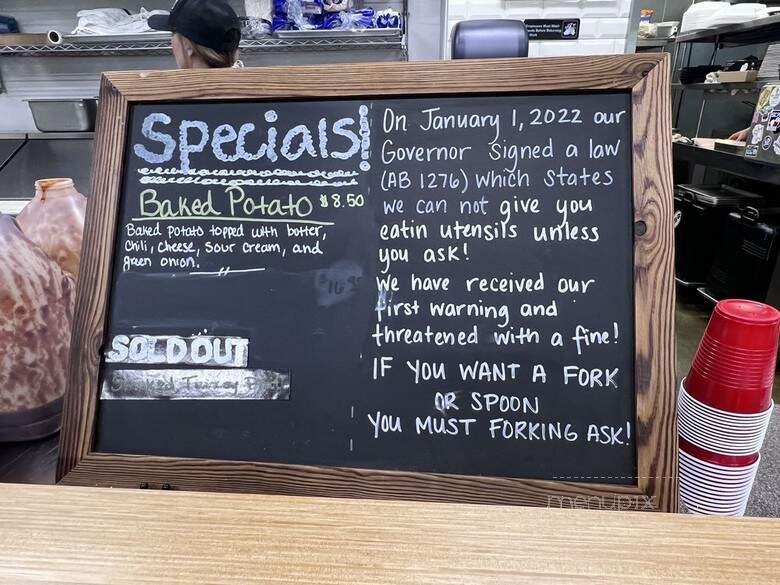 Specials!
Baked Potato $8.50
Baked potato topped with butter,
Chili, cheese, sour cream, and
green onion.
SOLD OUT
Smoked Turkey
On January 1, 2022 our
Governor signed a law
(AB 1276) which states
we can not give you
eatin utensils unless
you ask!
We have received our
first warning and
threatened with a fine!
IF YOU WANT A FORK
OR SPOON
YOU MUST FORKING ASK!
menupix